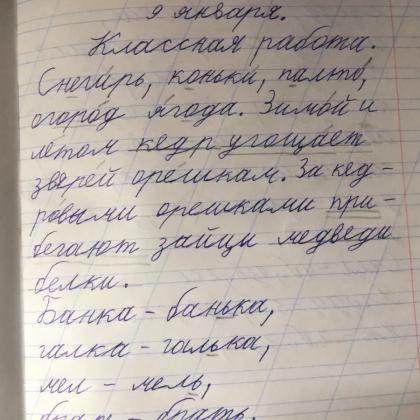 9 января.
Классная работа.
Снегирь, коньки, пальто,
огород ягода. Зимой и
летом кедр угощает
зверей орешкам. За кед-
ровыми орешками при-
бегают зайцы медведи
белки.
Банка - банька,
галка - галька,
мел - мель,
брат - брать.